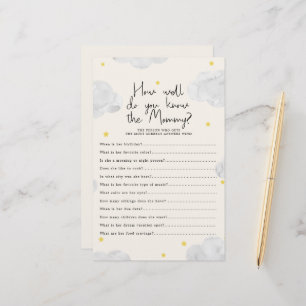 How well
do you know
the Mommy?
THE PERSON WHO GETS
THE MOST CORRECT ANSWERS WINS
When is her birthday?
What is her favorite color?
Is she a morning or night person?
Does she like to cook?
In what city was she born?
What is her favorite type of music?
What color are her eyes?
How many siblings does she have?
When is her due date?
How many children does she want?
What is her dream vacation spot?
What are her food cravings?